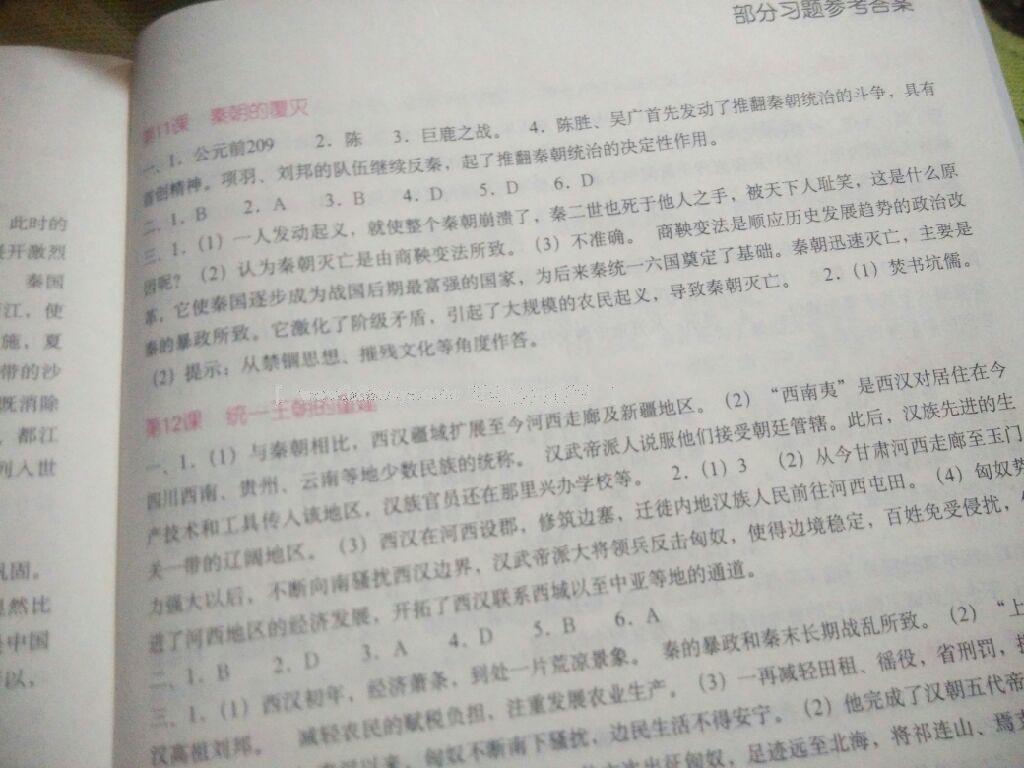 部分习题参考答案
此时的
展开激烈
秦国
江，使
施，夏
带的沙
既消除
，都江
列入世
巩固。
显然比
中国
以，
第11课 秦朝的覆灭
一、1．公元前209 2．陈 3．巨鹿之战。 4．陈胜、吴广首先发动了推翻秦朝统治的斗争，具有
首创精神。项羽、刘邦的队伍继续反秦，起了推翻秦朝统治的决定性作用。
二、1．B 2．A 3．B 4．D 5．D 6．D
三、1．（1）一人发动起义，就使整个秦朝崩溃了，秦二世也死于他人之手，被天下人耻笑，这是什么原
因呢？（2）认为秦朝灭亡是由商鞅变法所致。（3）不准确。 商鞅变法是顺应历史发展趋势的政治改
革，它使秦国逐步成为战国后期最富强的国家，为后来秦统一六国奠定了基础。秦朝迅速灭亡，主要是
秦的暴政所致。它激化了阶级矛盾，引起了大规模的农民起义，导致秦朝灭亡。 2．（1）焚书坑儒。
（2）提示：从禁锢思想、摧残文化等角度作答。
第12课 统一王朝的重建
一、1．（1）与秦朝相比，西汉疆域扩展至今河西走廊及新疆地区。（2）“西南夷”是西汉对居住在今
四川西南、贵州、云南等地少数民族的统称。 汉武帝派人说服他们接受朝廷管辖。此后，汉族先进的生
产技术和工具传入该地区，汉族官员还在那里兴办学校等。 2．（1）3 （2）从今甘肃河西走廊至玉门
关一带的辽阔地区。（3）西汉在河西设郡，修筑边塞，迁徙内地汉族人民前往河西屯田。（4）匈奴势
力强大以后，不断向南骚扰西汉边界，汉武帝派大将领兵反击匈奴，使得边境稳定，百姓免受侵扰，
进了河西地区的经济发展，开拓了西汉联系西域以至中亚等地的通道。
二、1．B 2．D 3．A 4．D 5．B 6．A
三、1．（1）西汉初年，经济萧条，到处一片荒凉景象。 秦的暴政和秦末长期战乱所致。（2）“上
汉高祖刘邦。 减轻农民的赋税负担，注重发展农业生产。（3）一再减轻田租、徭役，省刑罚，
以来，匈奴不断南下骚扰，边民生活不得安宁。（2）他完成了汉朝五代帝
出征匈奴，足迹远至北海，将祁连山、焉支